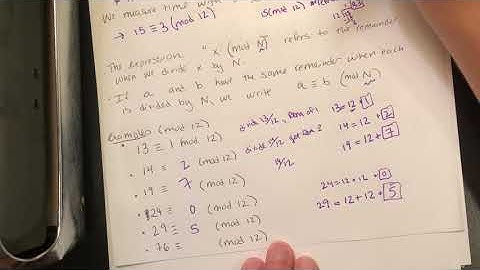 We measure time with
→ 15 ≡ 3 (mod 12) 15 (mod 12)
The expression "x (mod N)" refers to the remainder
when we divide x by N.
• If a and b have the same remainder when each
is divided by N, we write a ≡ b (mod N)
Examples (mod 12)
• 13 ≡ 1 mod 12) divide 13/12, Rem of 1 13 = 12 + 1
• 14 ≡ 2 (mod 12) divide 14/12 get Rem 2 14 = 12 + 2
• 19 ≡ 7 (mod 12) 19/12 19 = 12 + 7
• 24 ≡ 0 (mod 12) 24 = 12 + 12 + 0
• 29 ≡ 5 (mod 12) 29 = 12 + 12 + 5
• 76 ≡ (mod 12)